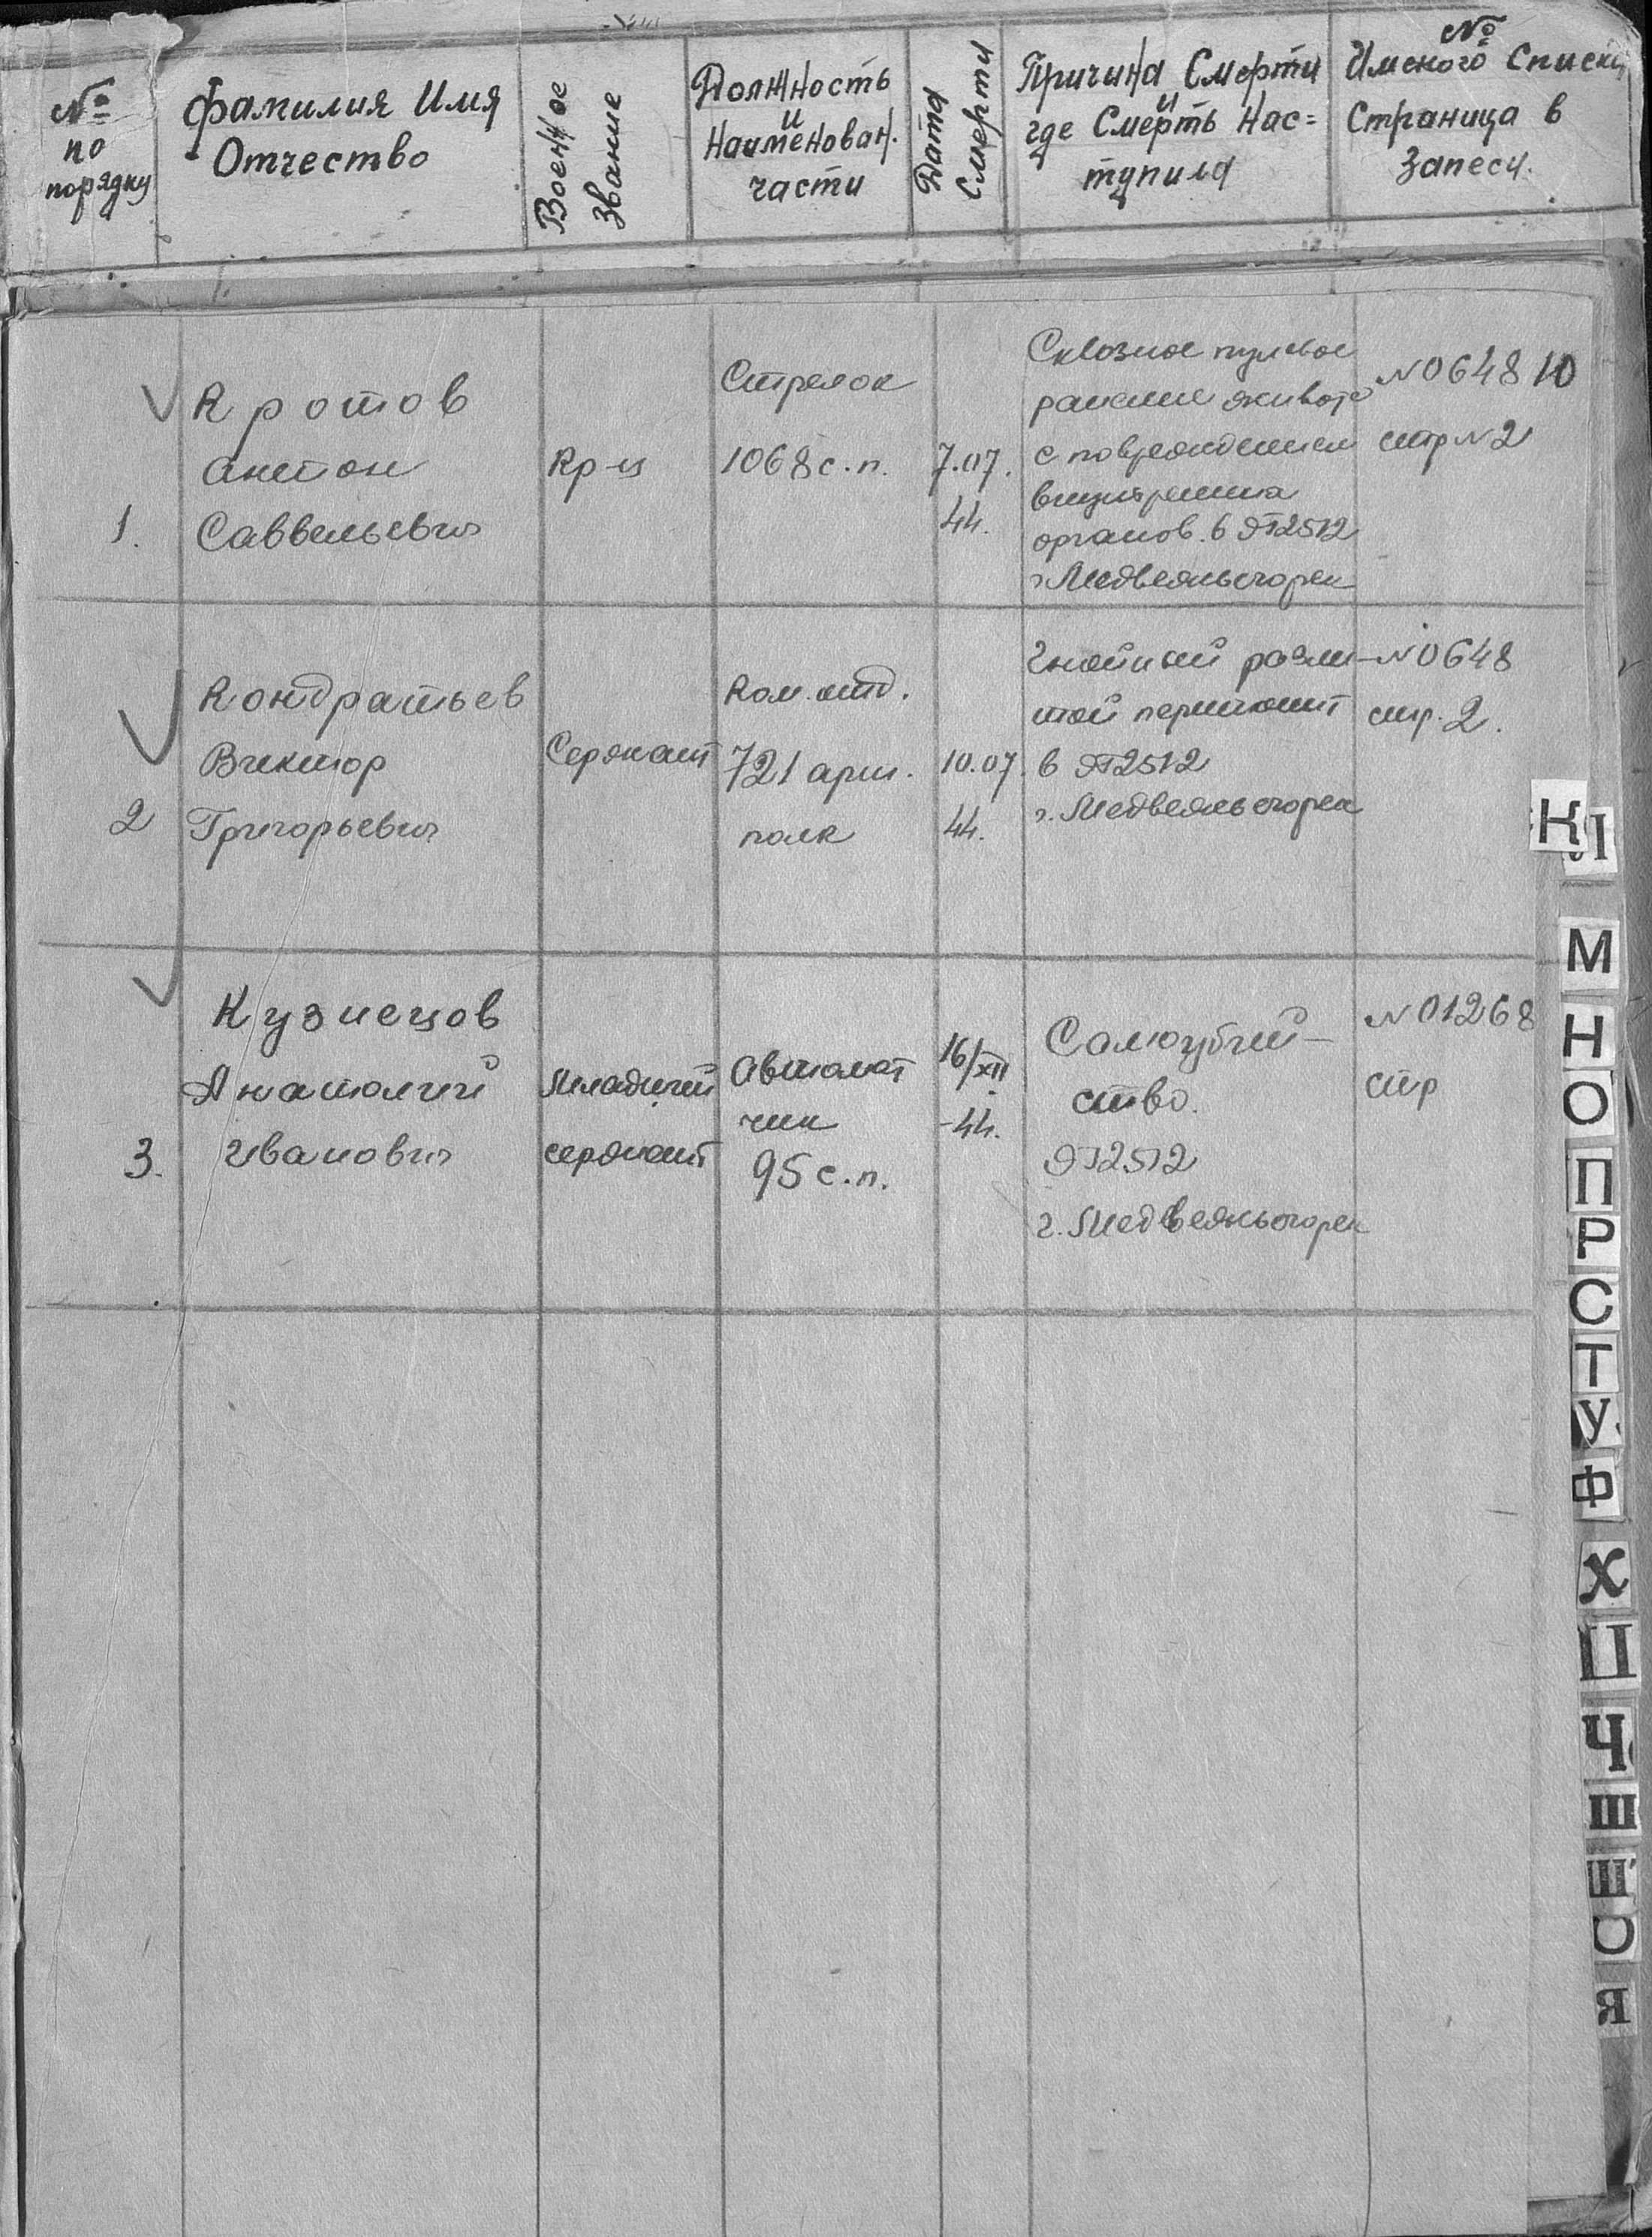 №
по
порядку
Фамилия Имя
Отчество
Военное
Звание
Должность
и
Наименован.
части
Дата
Смерти
Причина Смерти
и
где Смерть Нас=
тупила
№
Имсного Списка
Страница в
Запеси.
1.
Кротов
Антон
Саввельевич
Кр-ц
Стрелок
1068 с.п.
7.07.
44.
Сквозное пулевое
ранение живота
с повреждением
внутренних
органов. в ЭГ2512
г. Медвежьегорск
№0648 10
стр №2
2
Кондратьев
Виктор
Григорьевич
Сержант
Ком. отд.
721 арт.
полк
10.07.
44.
Гнойный разли-
той перитонит
в ЭГ2512
г. Медвежьегорск
№0648
стр. 2.
3.
Кузнецов
Анатолий
Иванович
Младший
сержант
Автомат
чик
95 с.п.
16/XII
-44.
Самоубий-
ство.
ЭГ2512
г. Медвежьегорск
№01268
стр
К
М
Н
О
П
Р
С
Т
У
Ф
Х
Ц
Ч
Ш
Я